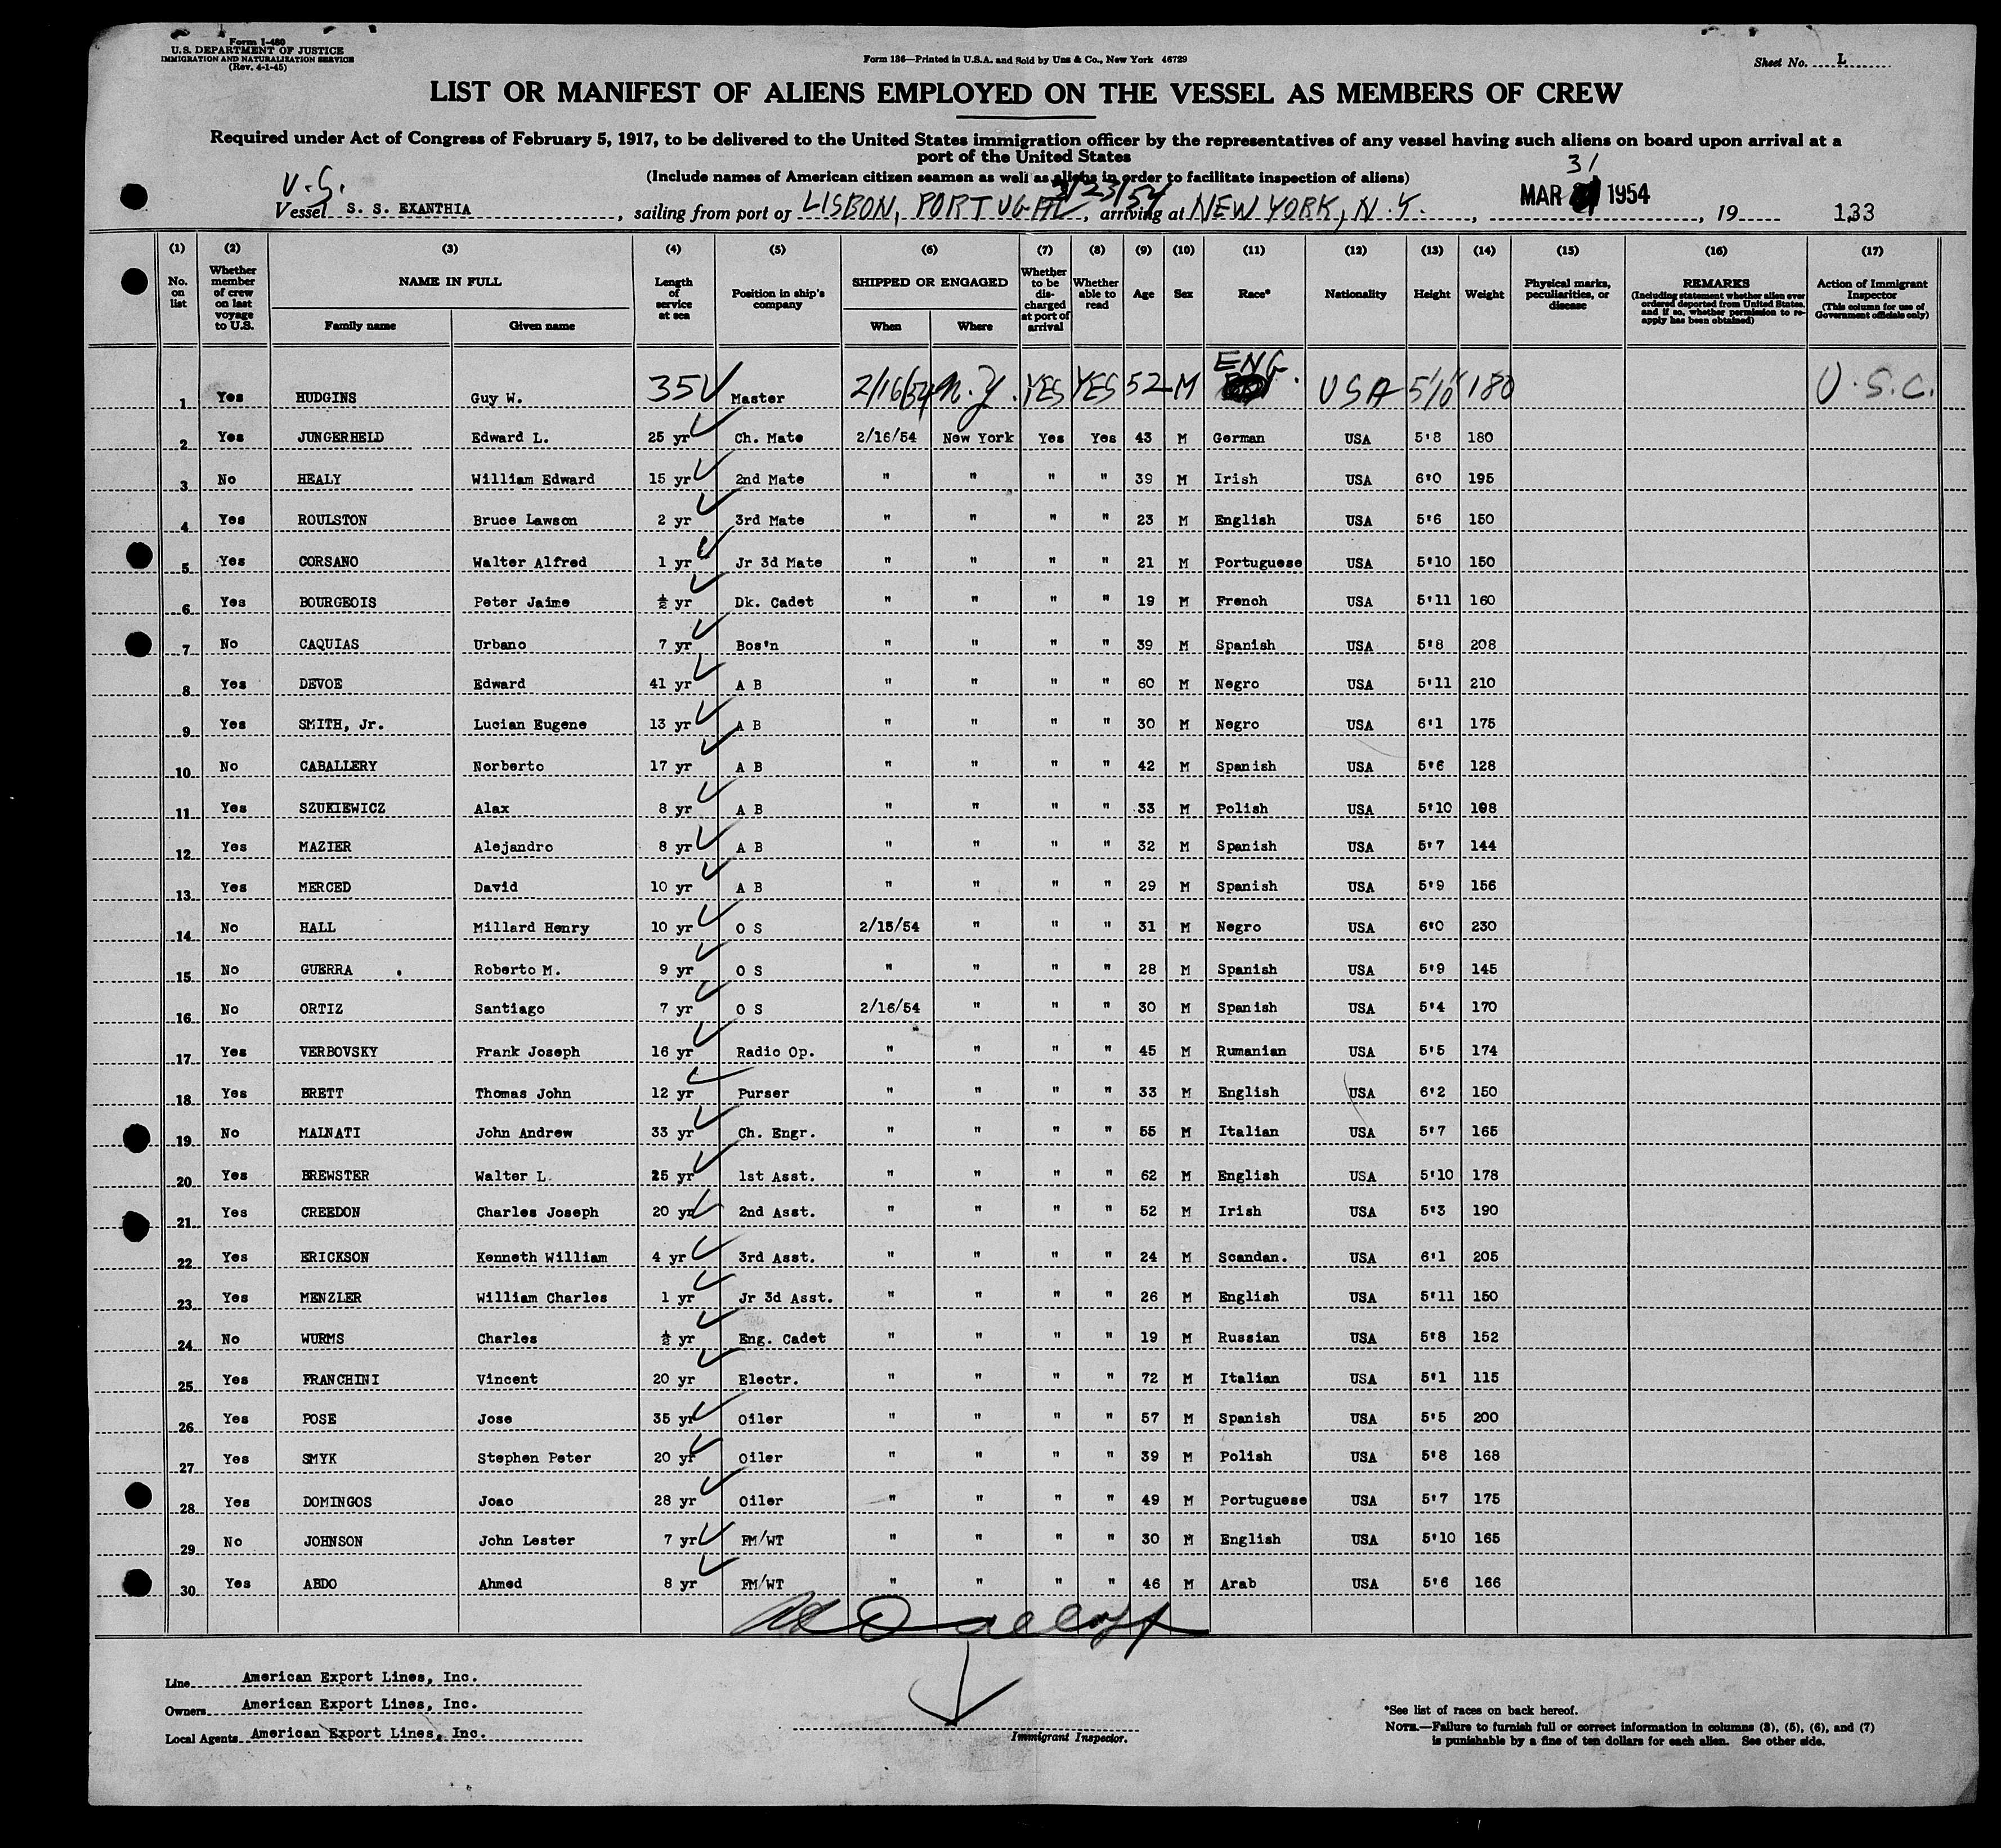 Form I-480
U.S. DEPARTMENT OF JUSTICE
IMMIGRATION AND NATURALIZATION SERVICE
(Rev. 4-1-45)
Form 136—Printed in U.S.A. and Sold by Unz & Co., New York 46729
Sheet No. L
LIST OR MANIFEST OF ALIENS EMPLOYED ON THE VESSEL AS MEMBERS OF CREW
Required under Act of Congress of February 5, 1917, to be delivered to the United States immigration officer by the representatives of any vessel having such aliens on board upon arrival at a
port of the United States
(Include names of American citizen seamen as well as aliens in order to facilitate inspection of aliens)
U.S. 3/23/54 31
Vessel S. S. EXANTHIA, sailing from port of LISBON, PORTUGAL, arriving at NEW YORK, N.Y., MAR 1954, 19 133
(1) (2) (3) (4) (5) (6) (7) (8) (9) (10) (11) (12) (13) (14) (15) (16) (17)
No. on list Whether member of crew on last voyage to U.S. NAME IN FULL Family name Given name Length of service at sea Position in ship's company SHIPPED OR ENGAGED When Where Whether to be discharged at port of arrival Whether able to read Age Sex Race* Nationality Height Weight Physical marks, peculiarities, or disease REMARKS (Including statement whether alien ever ordered deported from United States, and if so, whether permission to re-apply has been obtained) Action of Immigrant Inspector (This column for use of Government officials only)
1 Yes HUDGINS Guy W. 35 Master 2/16/54 N.Y. YES YES 52 M ENG. USA 5'10 180 U.S.C.
2 Yes JUNGERHELD Edward L. 25 yr Ch. Mate 2/16/54 New York Yes Yes 43 M German USA 5'8 180
3 No HEALY William Edward 15 yr 2nd Mate " " " " 39 M Irish USA 6'0 195
4 Yes ROULSTON Bruce Lawson 2 yr 3rd Mate " " " " 23 M English USA 5'6 150
5 Yes CORSANO Walter Alfred 1 yr Jr 3d Mate " " " " 21 M Portuguese USA 5'10 150
6 Yes BOURGEOIS Peter Jaime ½ yr Dk. Cadet " " " " 19 M French USA 5'11 160
7 No CAQUIAS Urbano 7 yr Bos'n " " " " 39 M Spanish USA 5'8 208
8 Yes DEVOE Edward 41 yr A B " " " " 60 M Negro USA 5'11 210
9 Yes SMITH, Jr. Lucian Eugene 13 yr A B " " " " 30 M Negro USA 6'1 175
10 No CABALLERY Norberto 17 yr A B " " " " 42 M Spanish USA 5'6 128
11 Yes SZUKIEWICZ Alax 8 yr A B " " " " 33 M Polish USA 5'10 198
12 Yes MAZIER Alejandro 8 yr A B " " " " 32 M Spanish USA 5'7 144
13 Yes MERCED David 10 yr A B " " " " 29 M Spanish USA 5'9 156
14 No HALL Millard Henry 10 yr O S 2/15/54 " " " 31 M Negro USA 6'0 230
15 No GUERRA Roberto M. 9 yr O S " " " " 28 M Spanish USA 5'9 145
16 No ORTIZ Santiago 7 yr O S 2/16/54 " " " 30 M Spanish USA 5'4 170
17 Yes VERBOVSKY Frank Joseph 16 yr Radio Op. " " " " 45 M Rumanian USA 5'5 174
18 Yes BRETT Thomas John 12 yr Purser " " " " 33 M English USA 6'2 150
19 No MAINATI John Andrew 33 yr Ch. Engr. " " " " 55 M Italian USA 5'7 165
20 Yes BREWSTER Walter L. 25 yr 1st Asst. " " " " 62 M English USA 5'10 178
21 Yes CREEDON Charles Joseph 20 yr 2nd Asst. " " " " 52 M Irish USA 5'3 190
22 Yes ERICKSON Kenneth William 4 yr 3rd Asst. " " " " 24 M Scandan. USA 6'1 205
23 Yes MENZLER William Charles 1 yr Jr 3d Asst. " " " " 26 M English USA 5'11 150
24 No WURMS Charles ½ yr Eng. Cadet " " " " 19 M Russian USA 5'8 152
25 Yes FRANCHINI Vincent 20 yr Electr. " " " " 72 M Italian USA 5'1 115
26 Yes POSE Jose 35 yr Oiler " " " " 57 M Spanish USA 5'5 200
27 Yes SMYK Stephen Peter 20 yr Oiler " " " " 39 M Polish USA 5'8 168
28 Yes DOMINGOS Joao 28 yr Oiler " " " " 49 M Portuguese USA 5'7 175
29 No JOHNSON John Lester 7 yr FM/WT " " " " 30 M English USA 5'10 165
30 Yes ABDO Ahmed 8 yr FM/WT " " " " 46 M Arab USA 5'6 166
Line American Export Lines, Inc.
Owners American Export Lines, Inc.
Local Agents American Export Lines, Inc.
Immigrant Inspector.
*See list of races on back hereof.
NOTE.—Failure to furnish full or correct information in columns (3), (5), (6), and (7)
is punishable by a fine of ten dollars for each alien. See other side.